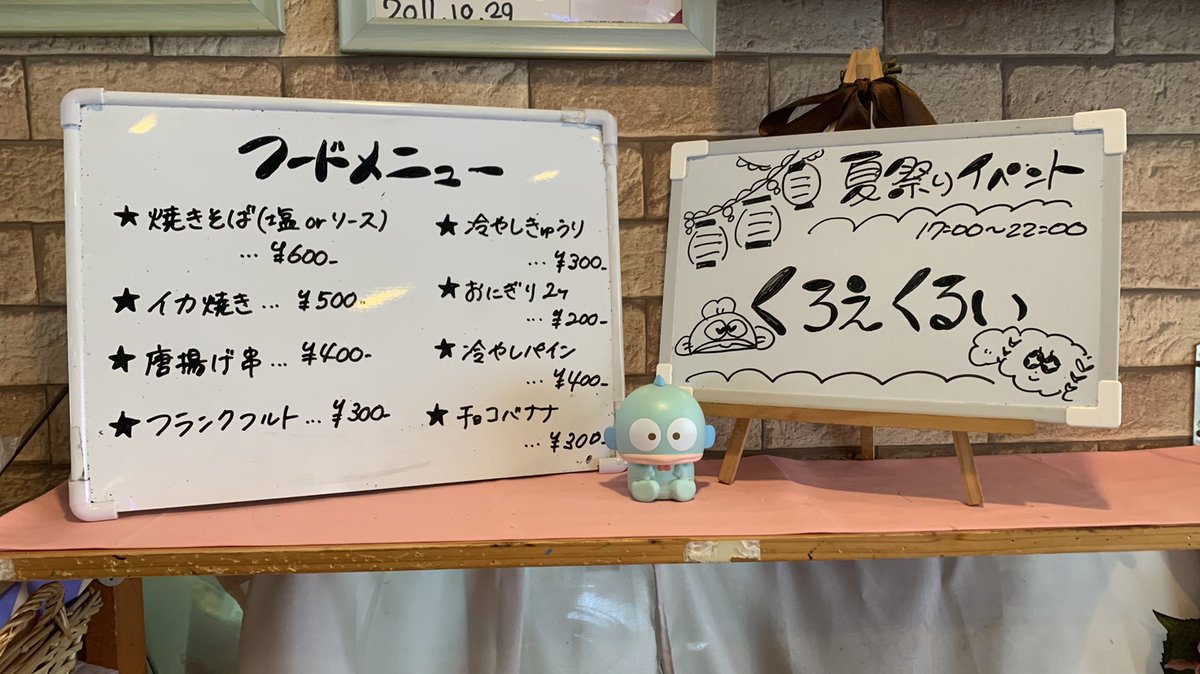 2011.10.29
フードメニュー
★焼きそば(塩orソース)
…¥600-
★イカ焼き…¥500-
★唐揚げ串…¥400-
★フランクフルト…¥300-
★冷やしきゅうり
…¥300-
★おにぎり2ヶ
…¥200-
★冷やしパイン
…¥400-
★チョコバナナ
…¥300-
夏祭りイベント
17:00〜22:00
くろえくるい